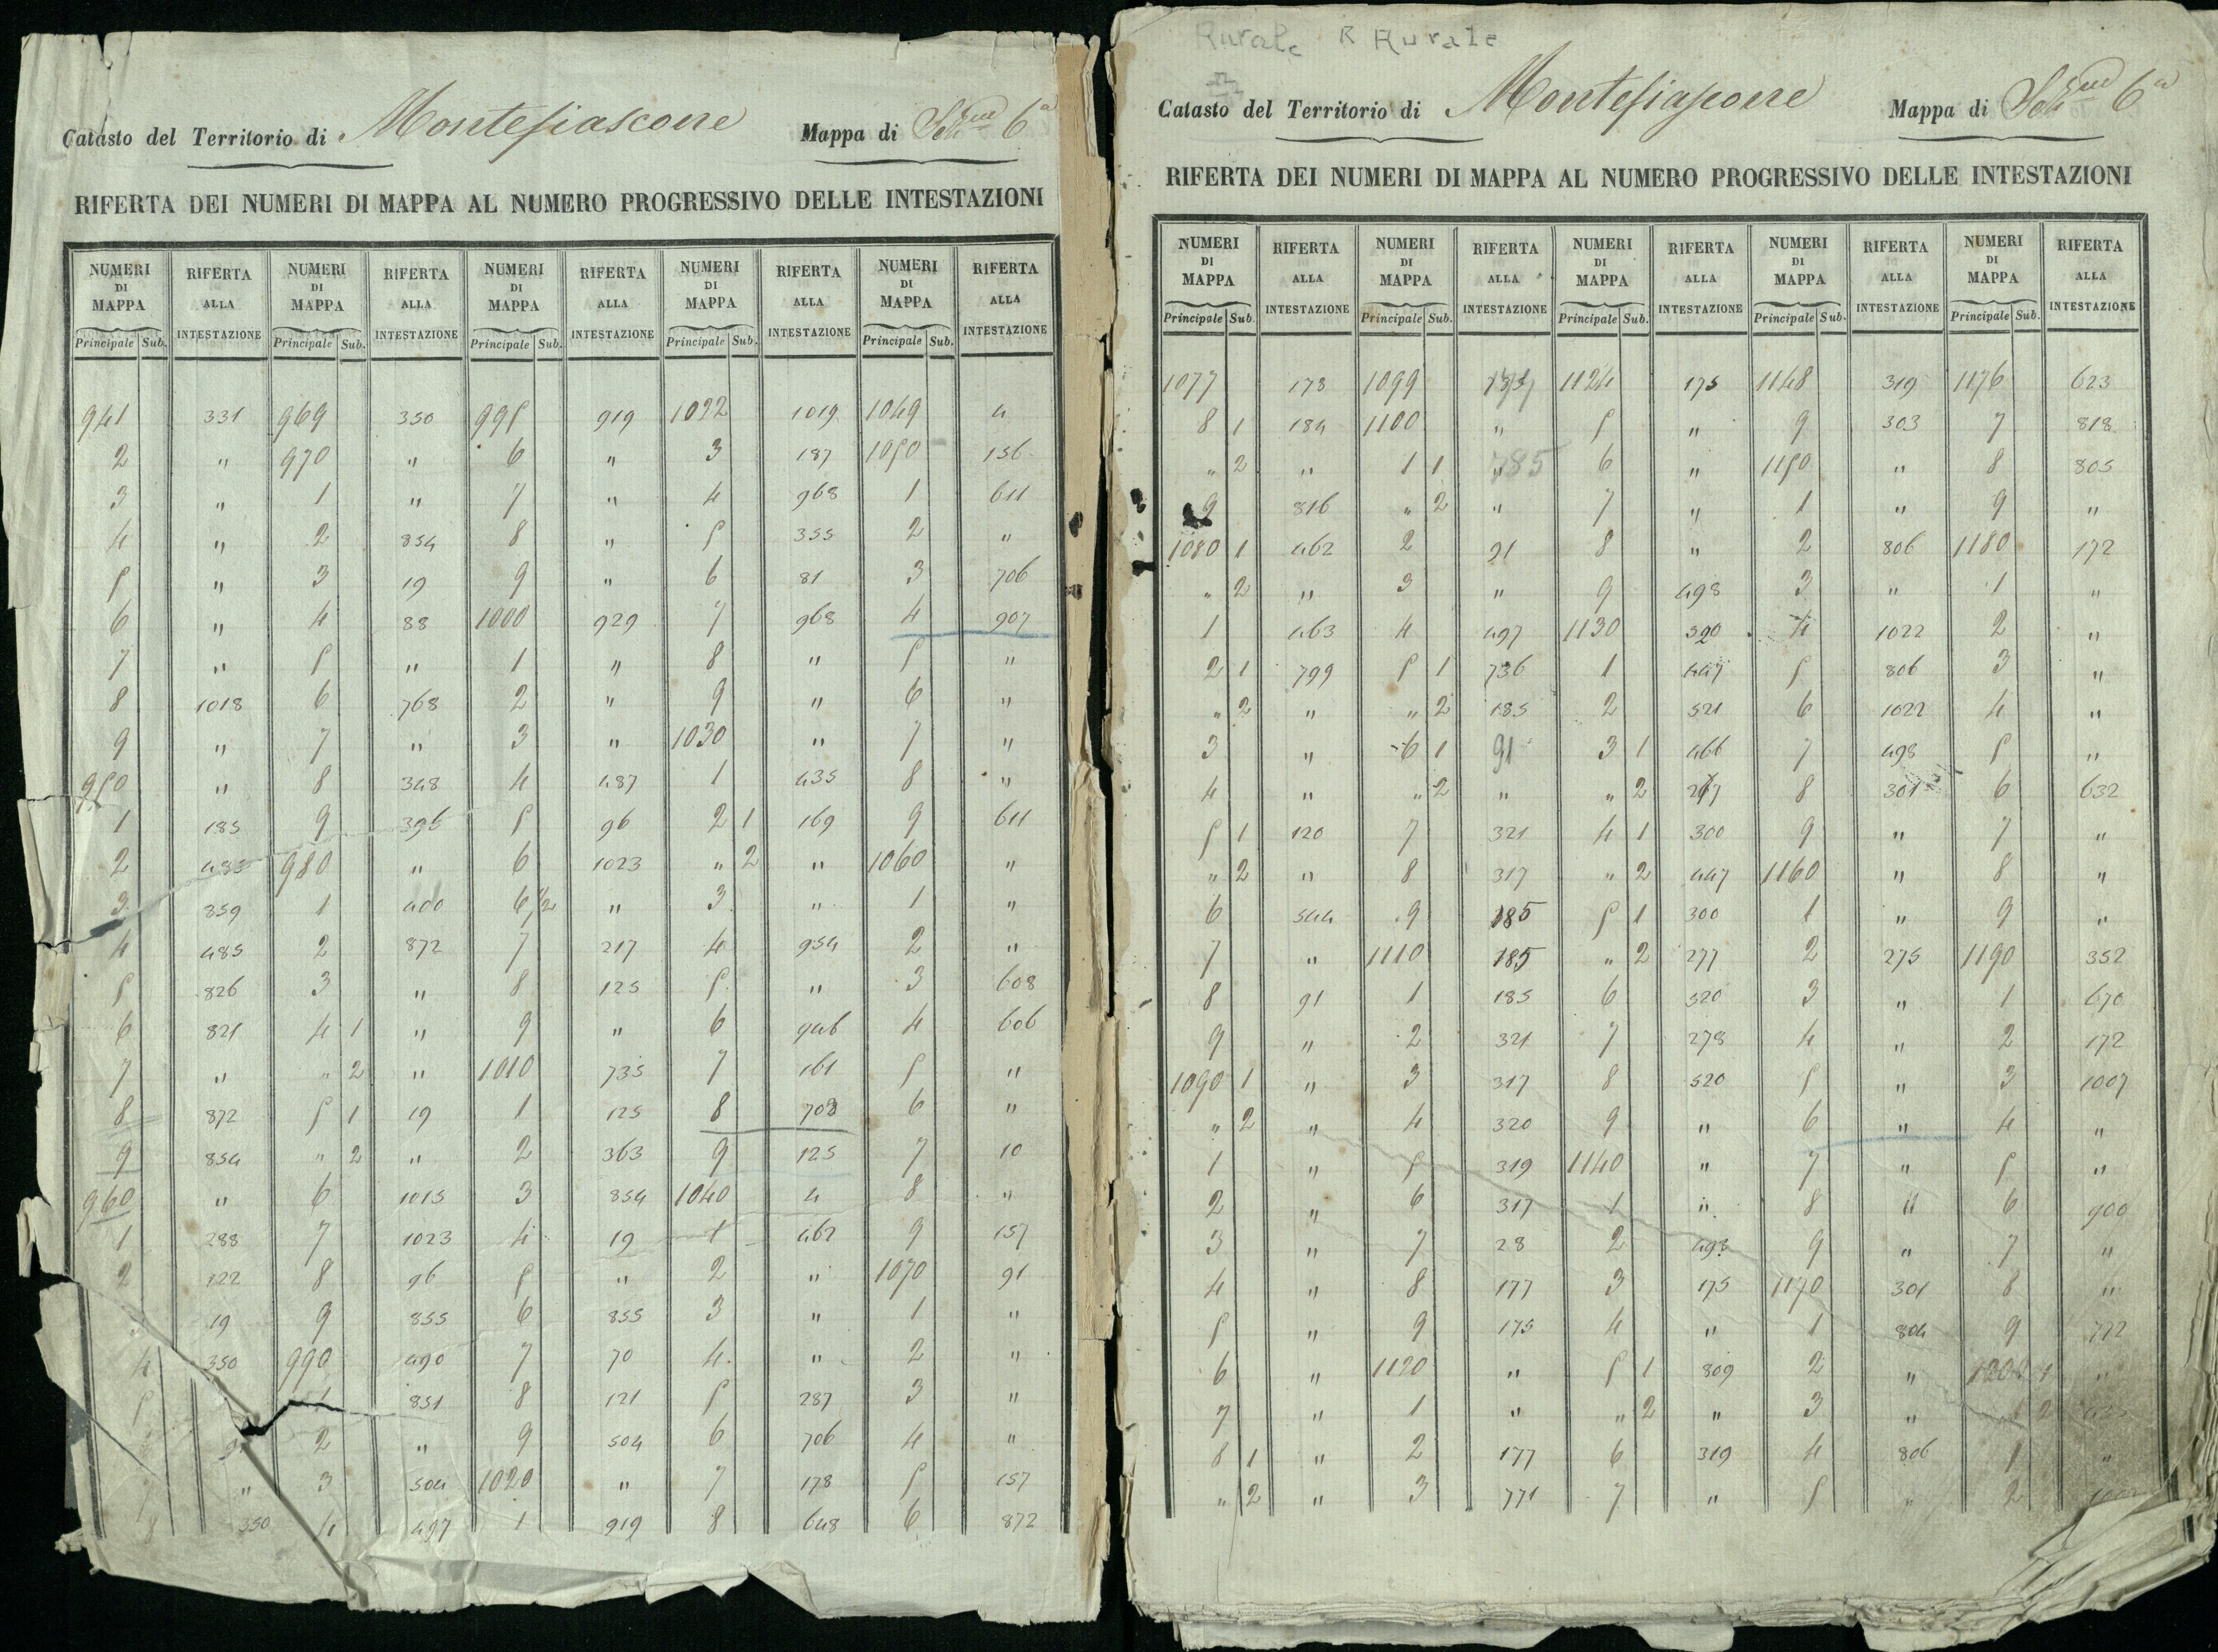 Catasto del Territorio di Montefiascone Mappa di Sez.ne 6a
RIFERTA DEI NUMERI DI MAPPA AL NUMERO PROGRESSIVO DELLE INTESTAZIONI
NUMERI DI MAPPA RIFERTA ALLA INTESTAZIONE NUMERI DI MAPPA RIFERTA ALLA INTESTAZIONE NUMERI DI MAPPA RIFERTA ALLA INTESTAZIONE NUMERI DI MAPPA RIFERTA ALLA INTESTAZIONE NUMERI DI MAPPA RIFERTA ALLA INTESTAZIONE
Principale Sub. Principale Sub. Principale Sub. Principale Sub. Principale Sub.
941 331 969 350 995 919 1022 1019 1049 4
2 " 970 " 6 " 3 187 1050 156
3 " 1 " 7 " 4 968 1 611
4 " 2 854 8 " 5 355 2 "
5 " 3 19 9 " 6 81 3 706
6 " 4 88 1000 929 7 968 4 907
7 " 5 " 1 " 8 " 5 "
8 1018 6 768 2 " 9 " 6 "
9 " 7 " 3 " 1030 " 7 "
950 " 8 348 4 487 1 435 8 "
1 185 9 396 5 96 2 1 169 9 611
2 485 980 " 6 1023 " 2 " 1060 "
3 859 1 400 6 1/2 " 3 " 1 "
4 485 2 872 7 217 4 954 2 "
5 826 3 " 8 125 5 " 3 608
6 821 4 1 " 9 " 6 946 4 606
7 " " 2 " 1010 735 7 161 5 "
8 872 5 1 19 1 125 8 708 6 "
9 854 " 2 " 2 363 9 125 7 10
960 " 6 1015 3 854 1040 4 8 "
1 288 7 1023 4 19 1 462 9 157
2 122 8 96 5 " 2 " 1070 91
19 9 855 6 855 3 " 1 "
4 350 990 490 7 70 4 " 2 "
5 1 851 8 121 5 287 3 "
2 " 9 504 6 706 4 "
" 3 504 1020 " 7 178 5 157
8 350 4 497 1 919 8 648 6 872
Rurale R Rurale
Catasto del Territorio di Montefiascone Mappa di Sez.ne 6a
RIFERTA DEI NUMERI DI MAPPA AL NUMERO PROGRESSIVO DELLE INTESTAZIONI
NUMERI DI MAPPA RIFERTA ALLA INTESTAZIONE NUMERI DI MAPPA RIFERTA ALLA INTESTAZIONE NUMERI DI MAPPA RIFERTA ALLA INTESTAZIONE NUMERI DI MAPPA RIFERTA ALLA INTESTAZIONE NUMERI DI MAPPA RIFERTA ALLA INTESTAZIONE
Principale Sub. Principale Sub. Principale Sub. Principale Sub. Principale Sub.
1077 178 1099 1124 175 1148 319 1176 623
8 1 184 1100 " 5 " 9 303 7 818
" 2 " 1 1 785 6 " 1150 " 8 805
9 816 " 2 " 7 " 1 " 9 "
1080 1 462 2 91 8 " 2 806 1180 172
" 2 " 3 " 9 498 3 " 1 "
1 463 4 497 1130 520 4 1022 2 "
2 1 799 5 1 736 1 447 5 806 3 "
" 2 " " 2 185 2 521 6 1022 4 "
3 " 6 1 91 3 1 466 7 498 5 "
4 " " 2 " " 2 8 301 6 632
5 1 120 7 321 4 1 300 9 " 7 "
" 2 " 8 317 " 2 447 1160 " 8 "
6 544 9 185 5 1 300 1 " 9 "
7 " 1110 185 " 2 277 2 275 1190 352
8 91 1 185 6 520 3 " 1 670
9 " 2 321 7 278 4 " 2 172
1090 1 " 3 317 8 520 5 " 3 1007
" 2 " 4 320 9 " 6 " 4 "
1 " 5 319 1140 " 7 " 5 "
2 " 6 317 1 " 8 " 6 900
3 " 7 28 2 498 9 " 7 "
4 " 8 177 3 175 1170 301 8 "
5 " 9 175 4 " 1 804 9 772
6 " 1120 " 5 1 809 2 " 1 "
7 " 1 " " 2 " 3 " 2
8 1 " 2 177 6 319 4 806 1 "
" 2 " 3 771 7 " 5 " 2